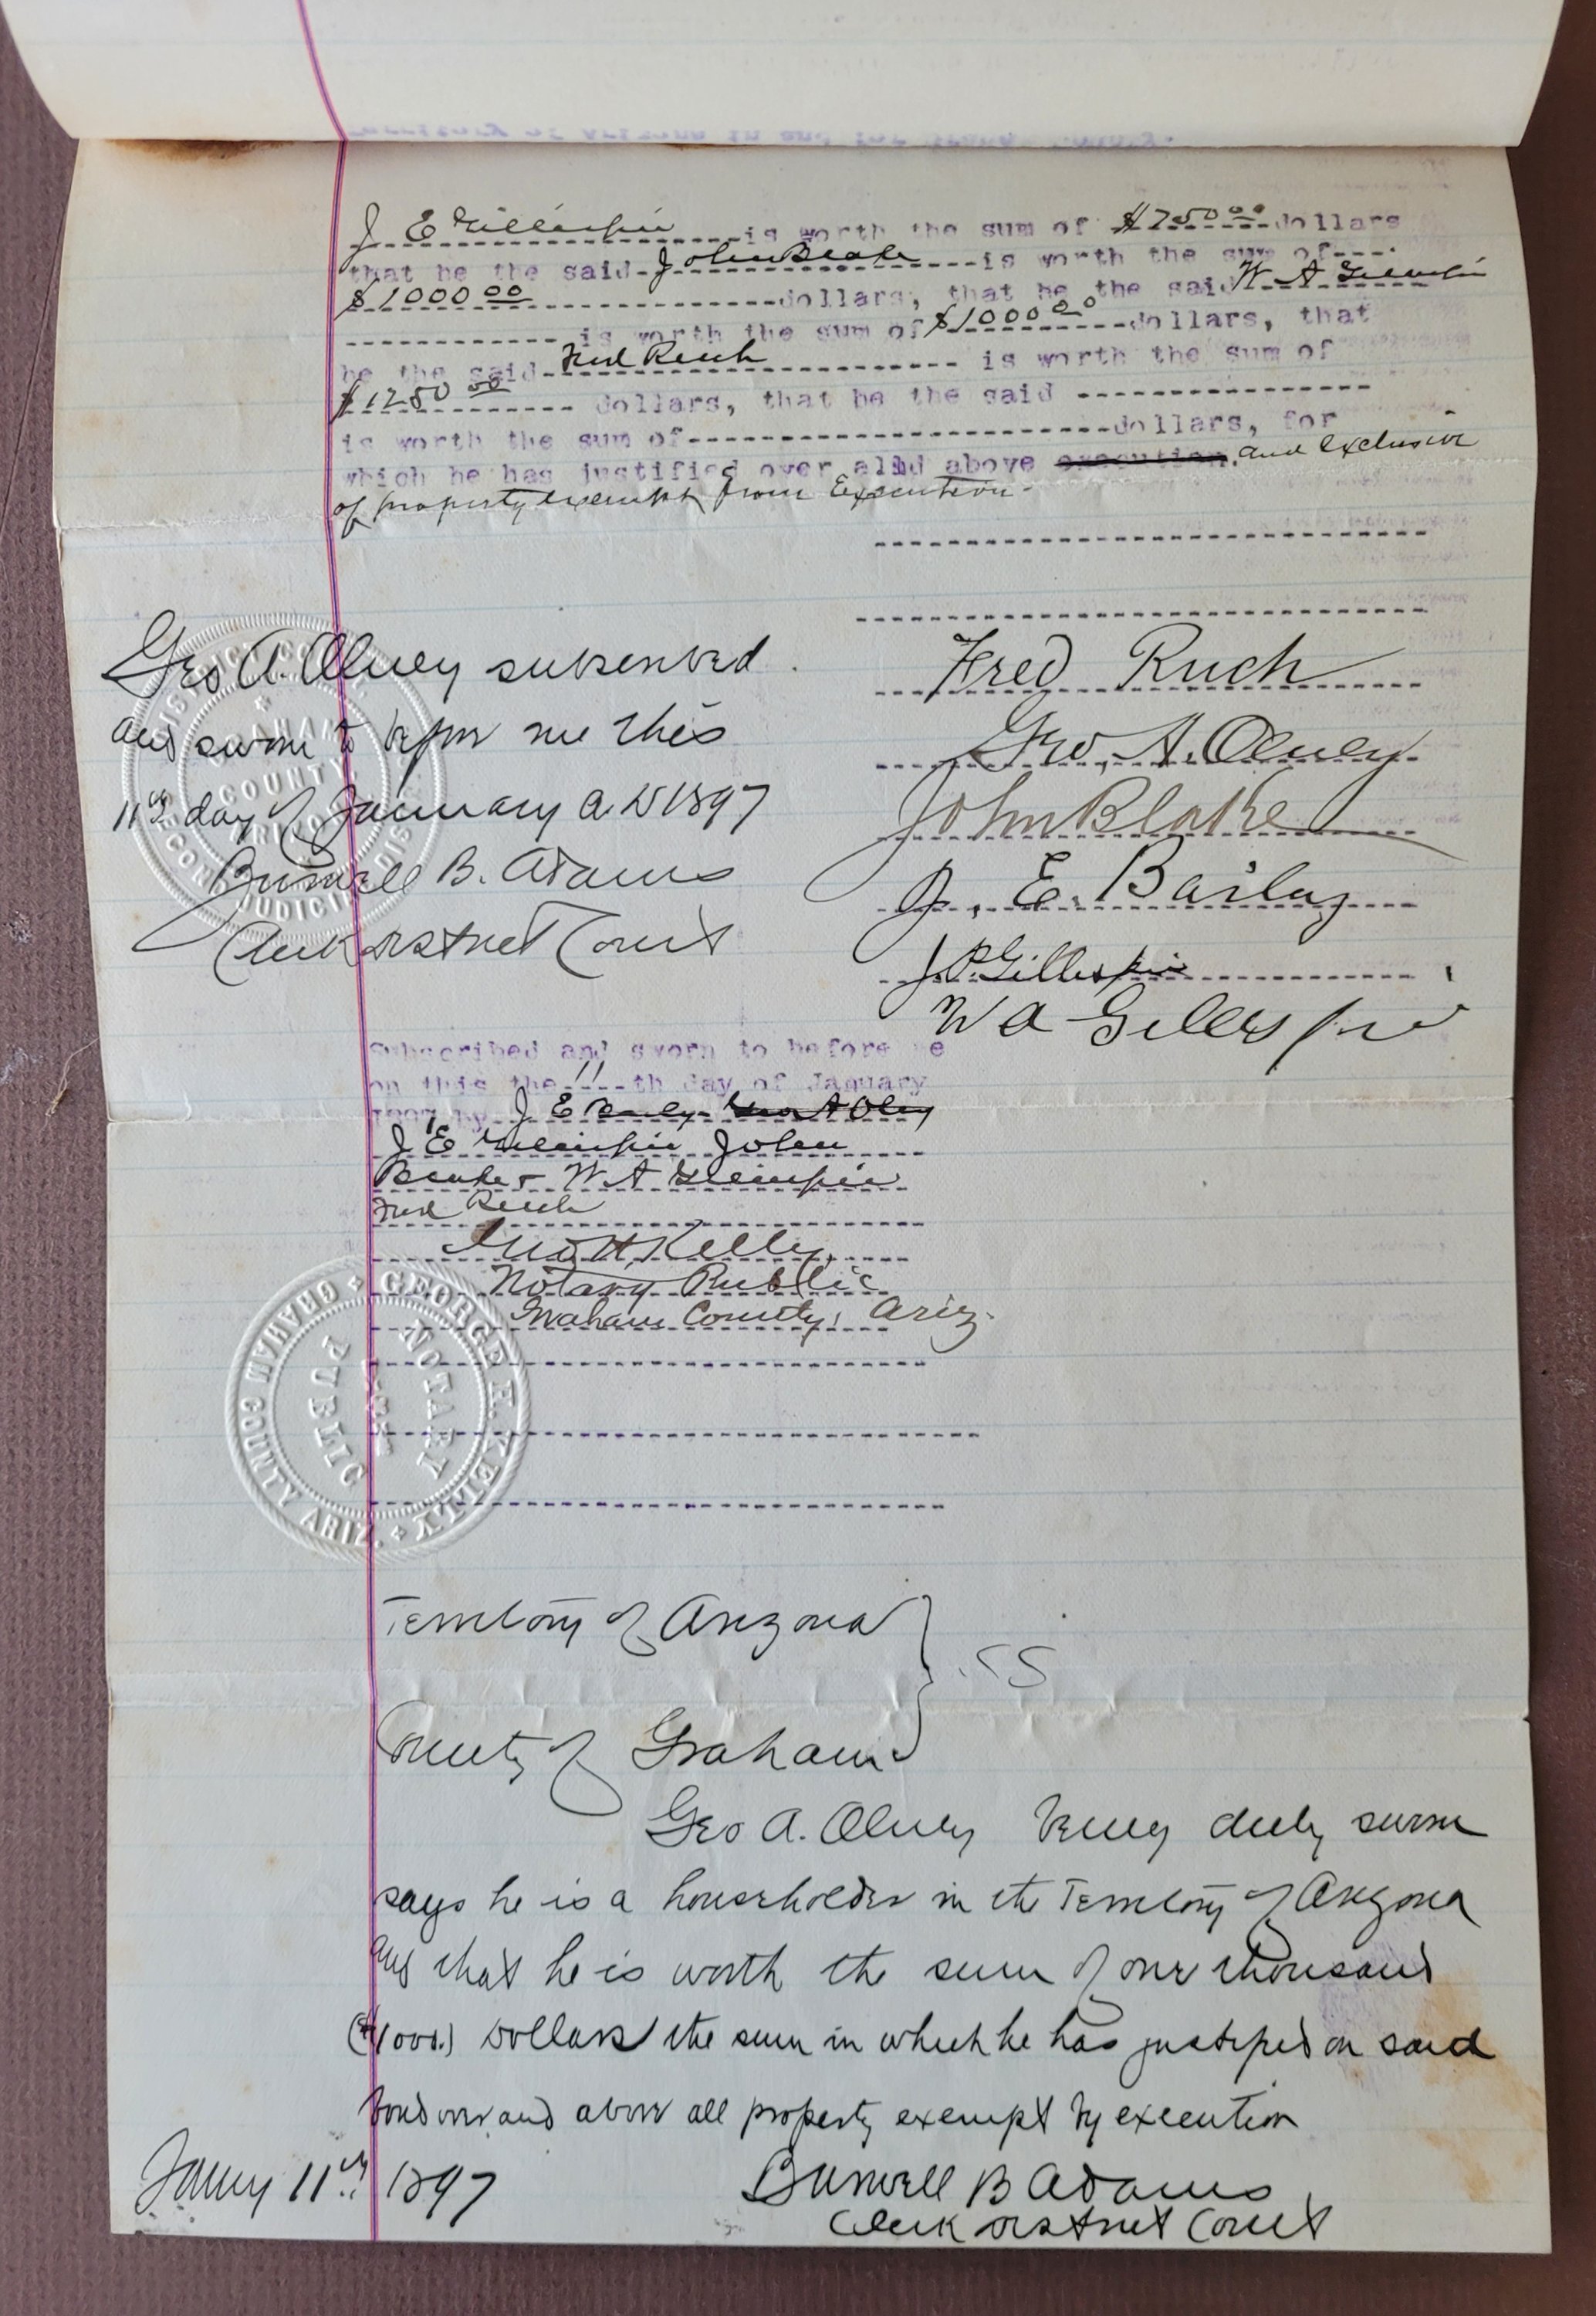 J E Gillespie is worth the sum of $750 00 dollars
that he the said John Blake is worth the sum of
$1000 00 dollars, that he the said W A Gillespie
is worth the sum of $1000 00 dollars, that
he the said Fred Ruch is worth the sum of
$1250 00 dollars, that he the said
is worth the sum of dollars, for
which he has justified over and above execution, and exclusive
of property exempt from Execution
Fred Ruch
Geo. A. Olney
John Blake
J. E. Bailey
J. P. Gillespie
W A Gillespie
Geo A. Olney subscribed
and sworn to before me this
11th day of January A D 1897
Burwell B. Adams
Clerk District Court
DISTRICT COURT
GRAHAM
COUNTY
ARIZONA
SECOND JUDICIAL DISTRICT
Subscribed and sworn to before me
on this the 11 th day of January
1897 by J E Baily Geo A Olney
J E Gillespie John
Blake W A Gillespie
Fred Ruch
Geo H. Kelly
Notary Public
Graham County, Ariz.
GEORGE H. KELLY
NOTARY
PUBLIC
GRAHAM COUNTY ARIZ.
Territory of Arizona
SS
County of Graham
Geo A. Olney being duly sworn
says he is a householder in the Territory of Arizona
and that he is worth the sum of one thousand
($1000.) Dollars the sum in which he has justified on said
bond over and above all property exempt by execution
Jany 11th 1897
Burwell B Adams
Clerk District Court